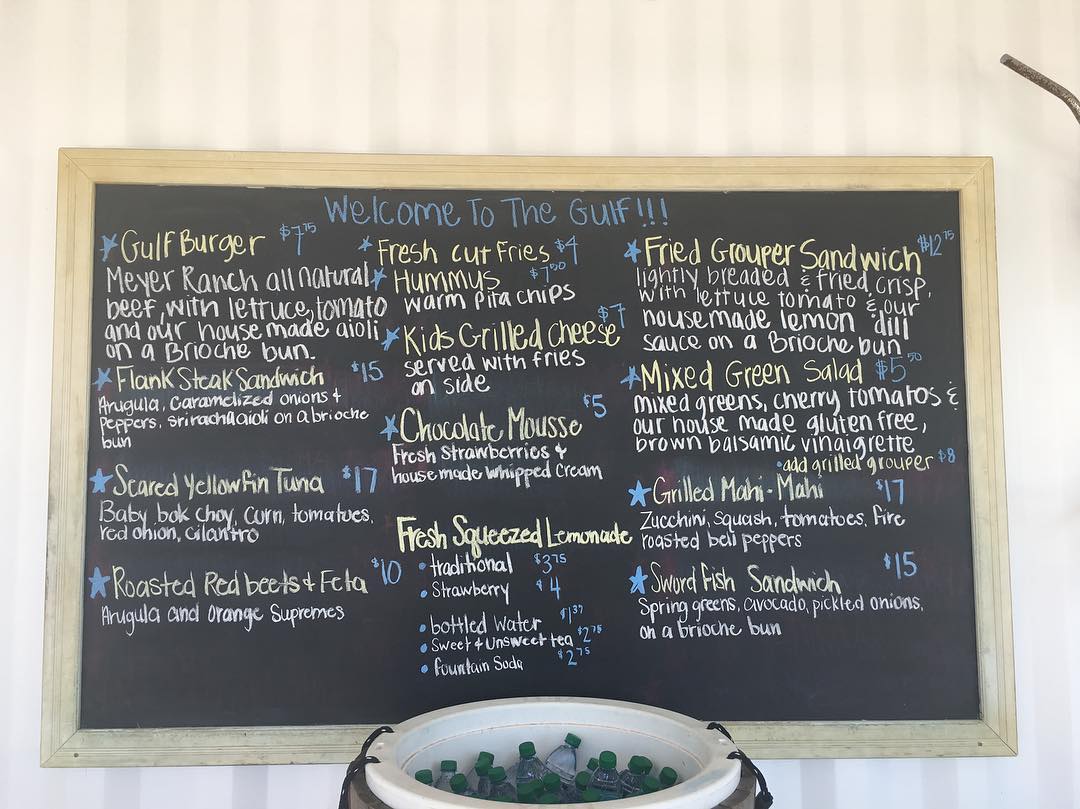 Welcome To The Gulf!!!
Gulf Burger $7.75
Meyer Ranch all natural
beef, with lettuce, tomato
and our house made aioli
on a Brioche bun.
Flank Steak Sandwich $15
Arugula, Caramelized onions &
Peppers, sriracha aioli on a brioche
bun
Seared Yellowfin Tuna $17
Baby bok choy, corn, tomatoes,
red onion, cilantro
Roasted Red beets & Feta $10
Arugula and Orange Supremes
Fresh cut Fries $4
Hummus $7.50
warm pita chips
Kids Grilled cheese $7
served with fries
on side
Chocolate Mousse $5
Fresh Strawberries &
house made whipped cream
Fresh Squeezed Lemonade
• traditional $3.75
• Strawberry $4
• bottled water
• Sweet & Unsweet tea $2.75
• fountain Soda $2.75
Fried Grouper Sandwich $12.75
lightly breaded & fried crisp,
with lettuce tomato & our
housemade lemon dill
sauce on a Brioche bun
Mixed Green Salad $5.50
mixed greens, cherry tomatoes &
our house made gluten free,
brown balsamic vinaigrette
• add grilled grouper $8
Grilled Mahi-Mahi $17
Zucchini, squash, tomatoes, fire
roasted bell peppers
Swordfish Sandwich $15
Spring greens, avocado, pickled onions,
on a brioche bun